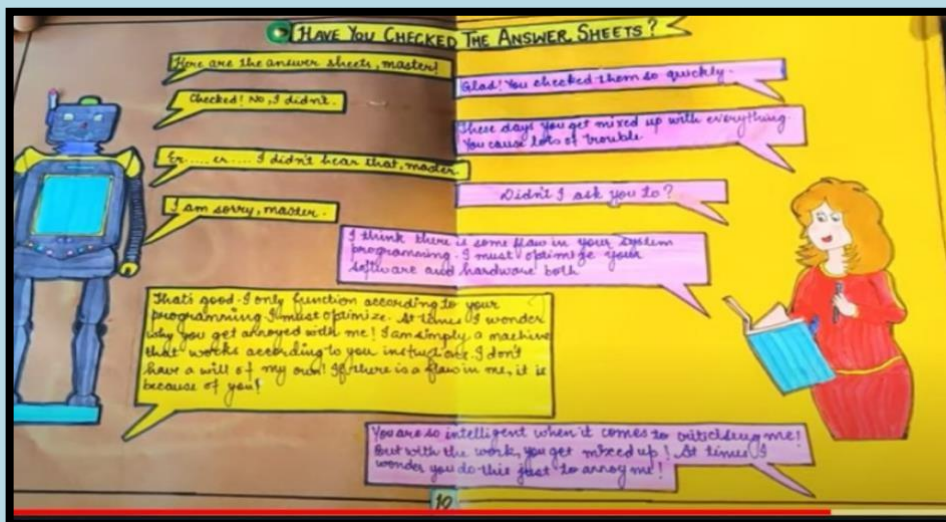 HAVE YOU CHECKED THE ANSWER SHEETS?
Here are the answer sheets, master!
Glad! You checked them so quickly.
Checked! No, I didn't.
These days you get mixed up with everything.
You cause lots of trouble.
Er..... er.... I didn't hear that, master.
Didn't I ask you to?
I am sorry, master.
I think there is some flaw in your system
programming. I must optimize your
software and hardware both
That's good. I only function according to your
programming. I must optimize. At times I wonder
why you get annoyed with me! I am simply a machine
that works according to you I don't
have a will of my own! If there is a flaw in me, it is
because of you!
You are so intelligent when it comes to me!
But with the work, you get mixed up! At times I
wonder you do this just to annoy me!
10